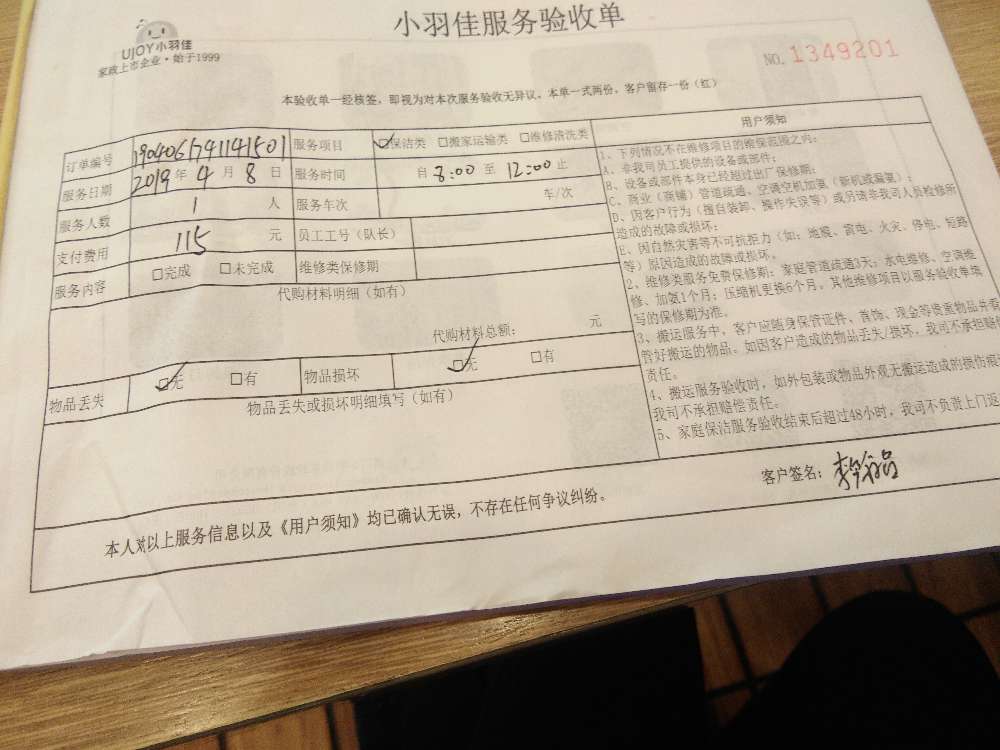 小羽佳服务验收单
UJOY小羽佳
家政上市企业·始于1999
NO. 1349201
本验收单一经核签，即视为对本次服务验收无异议。本单一式两份，客户留存一份（红）
订单编号 1904061791141501 服务项目 ☑保洁类 □搬家运输类 □维修清洗类
服务日期 2019年4月8日 服务时间 自8:00至12:00止
服务人数 1 人 服务车次 车/次
支付费用 115 元 员工工号（队长）
服务内容 □完成 □未完成 维修类保修期
代购材料明细（如有）
代购材料总额： 元
物品丢失 ☑无 □有 物品损坏 ☑无 □有
物品丢失或损坏明细填写（如有）
用户须知
1、下列情况不在维修项目的维保范围之内：
A、非我司员工提供的设备或部件；
B、设备或部件本身已经超过出厂保修期；
C、商业（商铺）管道疏通、空调空机加氨（新机或漏氨）；
D、因客户行为（擅自装卸、操作失误等）或另请非我司人员检修所
造成的故障或损坏；
E、因自然灾害等不可抗拒力（如：地震、雷电、火灾、停电、短路
等）原因造成的故障或损坏。
2、维修类服务免费保修期：家庭管道疏通3天；水电维修、空调维
修、加氨1个月；压缩机更换6个月，其他维修项目以服务验收单填
写的保修期为准。
3、搬运服务中，客户应随身保管证件、首饰、现金等贵重物品并看
管好搬运的物品。如因客户造成的物品丢失/损坏，我司不承担赔偿
责任。
4、搬运服务验收时，如外包装或物品外观无搬运造成的损伤痕
我司不承担赔偿责任。
5、家庭保洁服务验收结束后超过48小时，我司不负责上门返
客户签名：
本人对以上服务信息以及《用户须知》均已确认无误，不存在任何争议纠纷。